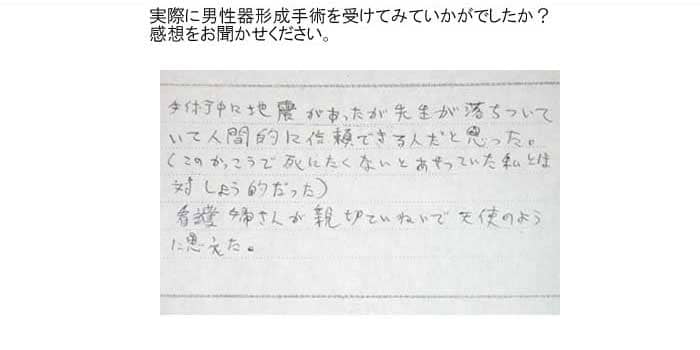 実際に男性器形成手術を受けてみていかがでしたか？
感想をお聞かせください。
中に地震があったが先生が落ちついて
いて人間的に信頼できる人だと思った。
(このかっこうで死にたくないとあせっていた私とは
対しょう的だった)
看護婦さんが親切ていねいで天使のよう
に思えた。